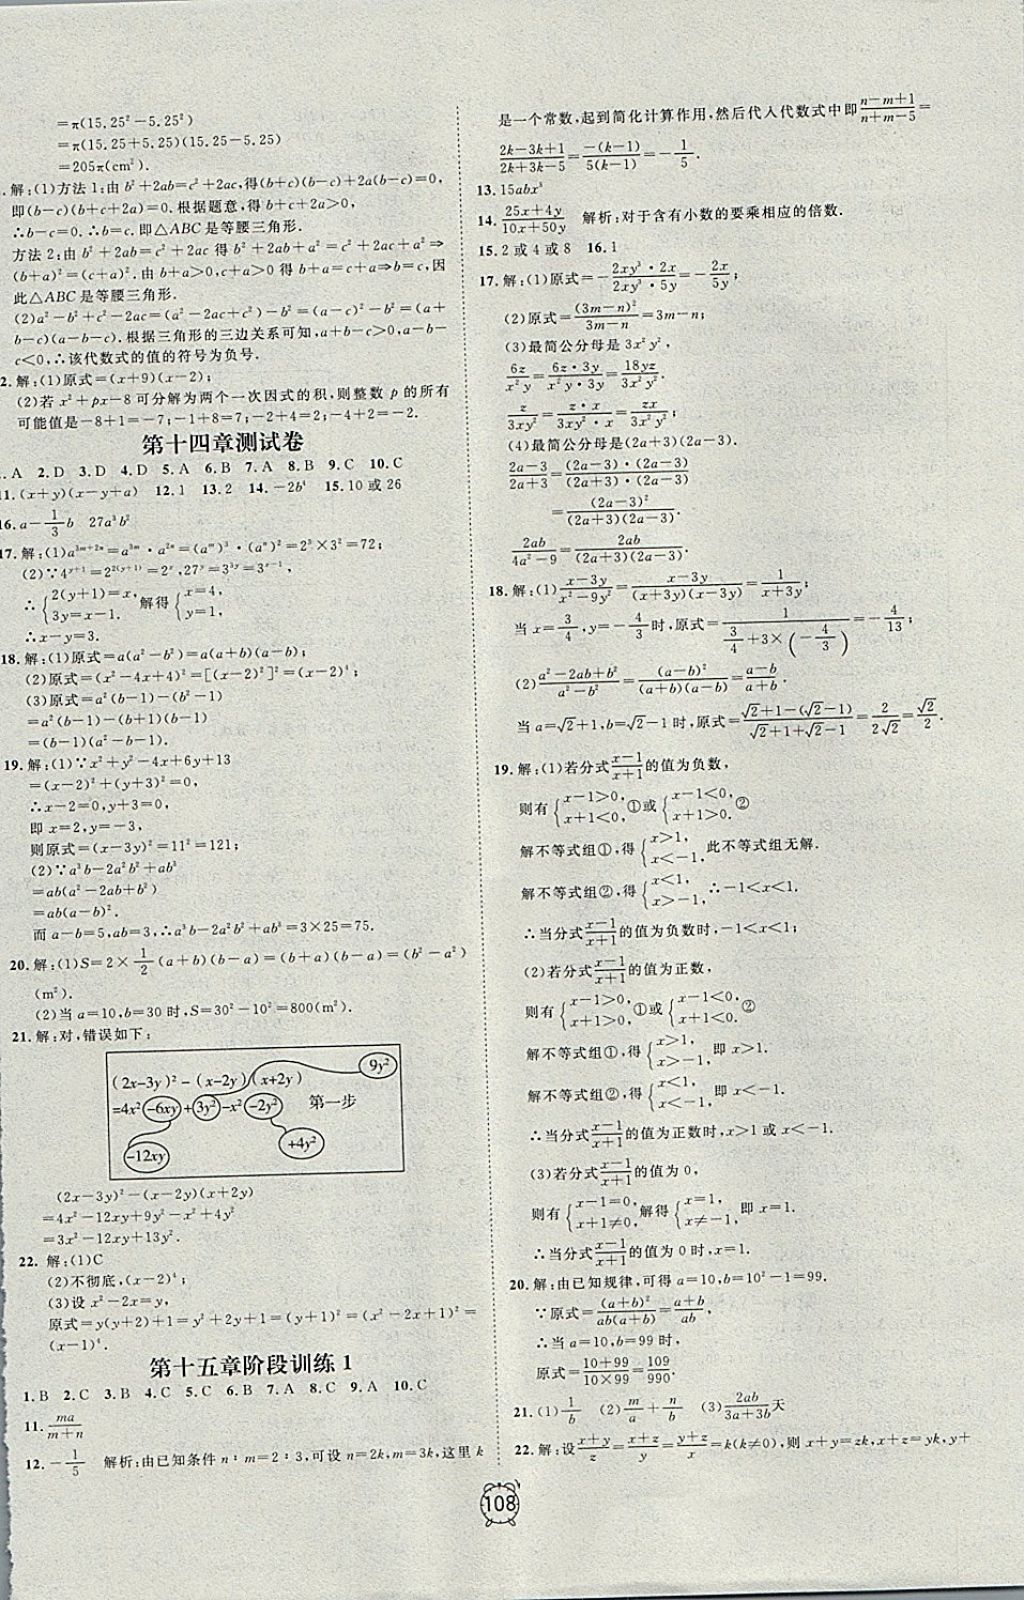 =π(15.25²-5.25²)
=π(15.25+5.25)(15.25-5.25)
=205π(cm²).
.解:(1)方法1:由b²+2ab=c²+2ac,得(b+c)(b-c)+2a(b-c)=0,
即(b-c)(b+c+2a)=0.根据题意,得b+c+2a>0,
∴b-c=0.∴b=c.即△ABC是等腰三角形.
方法2:由b²+2ab=c²+2ac得b²+2ab+a²=c²+2ac+a²⇒
(b+a)²=(c+a)².由b+a>0,c+a>0得b+a=c+a⇒b=c,因
此△ABC是等腰三角形.
(2)a²-b²+c²-2ac=(a²-2ac+c²)-b²=(a-c)²-b²=(a+
b-c)(a-b-c).根据三角形的三边关系可知,a+b-c>0,a-b-
c<0,∴该代数式的值的符号为负号.
2.解:(1)原式=(x+9)(x-2);
(2)若x²+px-8可分解为两个一次因式的积,则整数p的所有
可能值是-8+1=-7;-1+8=7;-2+4=2;-4+2=-2.
第十四章测试卷
1.A 2.D 3.D 4.D 5.A 6.B 7.A 8.B 9.C 10.C
11.(x+y)(x-y+a) 12.1 13.2 14.-2b⁴ 15.10或26
16.a-1/3b 27a³b²
17.解:(1)a³ᵐ⁺²ⁿ=a³ᵐ·a²ⁿ=(aᵐ)³·(aⁿ)²=2³×3²=72;
(2)∵4^(y+1)=2^(2(y+1))=2ˣ,27ʸ=3^(3y)=3^(x-1),
∴{2(y+1)=x, 3y=x-1. 解得{x=4, y=1,
∴x-y=3.
18.解:(1)原式=a(a²-b²)=a(a+b)(a-b);
(2)原式=(x²-4x+4)²=[(x-2)²]²=(x-2)⁴;
(3)原式=a²(b-1)-(b²-1)
=a²(b-1)-(b+1)(b-1)
=(b-1)(a²-b-1).
19.解:(1)∵x²+y²-4x+6y+13
=(x-2)²+(y+3)²=0,
∴x-2=0,y+3=0,
即x=2,y=-3,
则原式=(x-3y)²=11²=121;
(2)∵a³b-2a²b²+ab³
=ab(a²-2ab+b²)
=ab(a-b)².
而a-b=5,ab=3,∴a³b-2a²b²+ab³=3×25=75.
20.解:(1)S=2×1/2(a+b)(b-a)=(b+a)(b-a)=(b²-a²)
(m²).
(2)当a=10,b=30时,S=30²-10²=800(m²).
21.解:对,错误如下:
9y²
(2x-3y)²-(x-2y)(x+2y)
=4x²-6xy+3y²-x²-2y² 第一步
-12xy +4y²
(2x-3y)²-(x-2y)(x+2y)
=4x²-12xy+9y²-x²+4y²
=3x²-12xy+13y².
22.解:(1)C
(2)不彻底,(x-2)⁴;
(3)设x²-2x=y,
原式=y(y+2)+1=y²+2y+1=(y+1)²=(x²-2x+1)²=
(x-1)⁴.
第十五章阶段训练1
1.B 2.C 3.B 4.C 5.C 6.B 7.A 8.C 9.A 10.C
11.ma/(m+n)
12.-1/5 解析:由已知条件n∶m=2∶3,可设n=2k,m=3k,这里k
是一个常数,起到简化计算作用,然后代入代数式中即(n-m+1)/(n+m-5)=
(2k-3k+1)/(2k+3k-5)=-(k-1)/5(k-1)=-1/5.
13.15abx³
14.(25x+4y)/(10x+50y) 解析:对于含有小数的要乘相应的倍数.
15.2或4或8 16.1
17.解:(1)原式=-(2xy³·2x)/(2xy³·5y)=-2x/5y;
(2)原式=(3m-n)²/(3m-n)=3m-n;
(3)最简公分母是3x²y²,
6z/x²y=(6z·3y)/(x²y·3y)=18yz/3x²y²,
z/3xy²=(z·x)/(3xy²·x)=zx/3x²y²;
(4)最简公分母是(2a+3)(2a-3).
(2a-3)/(2a+3)=(2a-3)·(2a-3)/(2a+3)·(2a-3)
=(2a-3)²/(2a+3)(2a-3),
2ab/(4a²-9)=2ab/(2a+3)(2a-3).
18.解:(1)(x-3y)/(x²-9y²)=(x-3y)/(x+3y)(x-3y)=1/(x+3y),
当x=3/4,y=-4/3时,原式=1/(3/4+3×(-4/3))=-4/13;
(2)(a²-2ab+b²)/(a²-b²)=(a-b)²/(a+b)(a-b)=(a-b)/(a+b).
当a=√2+1,b=√2-1时,原式=(√2+1-(√2-1))/(√2+1+√2-1)=2/2√2=√2/2.
19.解:(1)若分式(x-1)/(x+1)的值为负数,
则有{x-1>0, x+1<0,①或{x-1<0, x+1>0.②
解不等式组①,得{x>1, x<-1,此不等式组无解.
解不等式组②,得{x<1, x>-1.∴-1<x<1.
∴当分式(x-1)/(x+1)的值为负数时,-1<x<1.
(2)若分式(x-1)/(x+1)的值为正数,
则有{x-1>0, x+1>0,①或{x-1<0, x+1<0.②
解不等式组①,得{x>1, x>-1.即x>1.
解不等式组②,得{x<1, x<-1.即x<-1.
∴当分式(x-1)/(x+1)的值为正数时,x>1或x<-1.
(3)若分式(x-1)/(x+1)的值为0,
则有{x-1=0, x+1≠0,解得{x=1, x≠-1,即x=1.
∴当分式(x-1)/(x+1)的值为0时,x=1.
20.解:由已知规律,可得a=10,b=10²-1=99.
∵原式=(a+b)²/ab(a+b)=(a+b)/ab,
∴当a=10,b=99时,
原式=(10+99)/(10×99)=109/990.
21.(1)1/b (2)m/a+n/b (3)2ab/(3a+3b)天
22.解:设(x+y)/z=(x+z)/y=(y+z)/x=k(k≠0),则x+y=zk,x+z=yk,y+
108